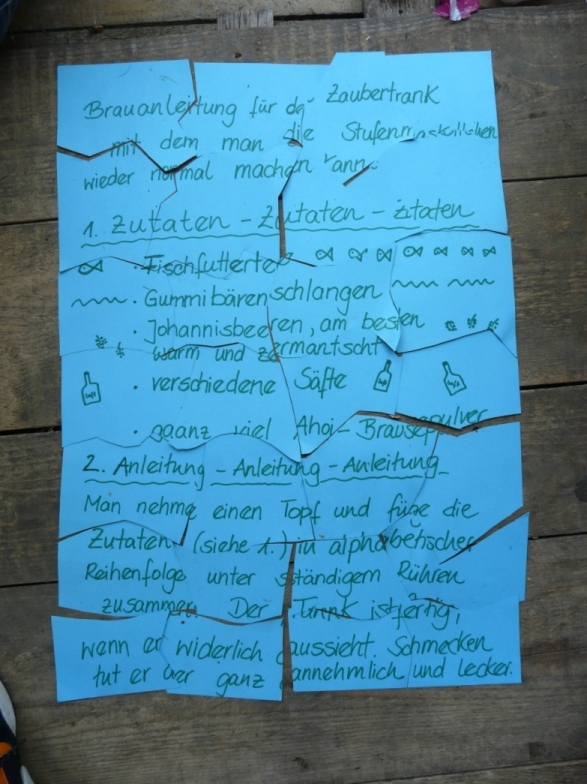 Brauanleitung für de Zaubertrank
mit dem man die
wieder normal machen kann.
1. Zutaten - Zutaten - Zutaten
· Fischfutter
· Gummibärenschlangen
· Johannisbeeren, am besten
warm und zermantscht
· verschiedene Säfte
· gaanz viel Ahoi-Brausepulver
2. Anleitung - Anleitung - Anleitung
Man nehme einen Topf und füge die
Zutaten (siehe 1.) in alphabetischer
Reihenfolge unter ständigem Rühren
zusammen. Der Trank ist fertig,
wenn er widerlich aussieht. Schmecken
tut er aber ganz annehmlich und lecker.